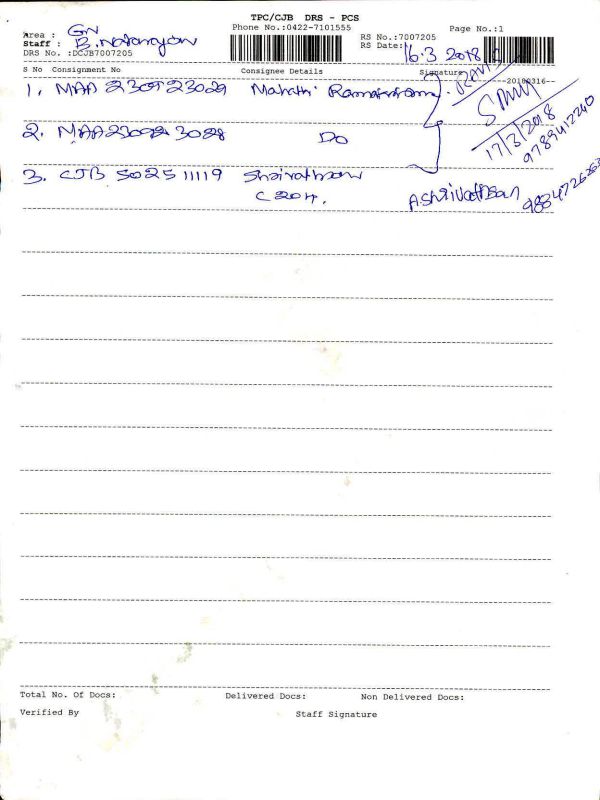 TPC/CJB DRS - PCS
Area : GN
Phone No.:0422-7101555
Page No.:1
Staff : B. Natarajan
RS No.:7007205
DRS No. :DCJB7007205
RS Date: 16.3.2018
S No Consignment No Consignee Details Signature
--20180316--
1, MAA 230923029 Mahathi
RAVI
2. MAA230923028 Do
17/3/2018
9789412240
3. CJB 502511119
Ashrivathsan
Total No. Of Docs: Delivered Docs: Non Delivered Docs:
Verified By Staff Signature